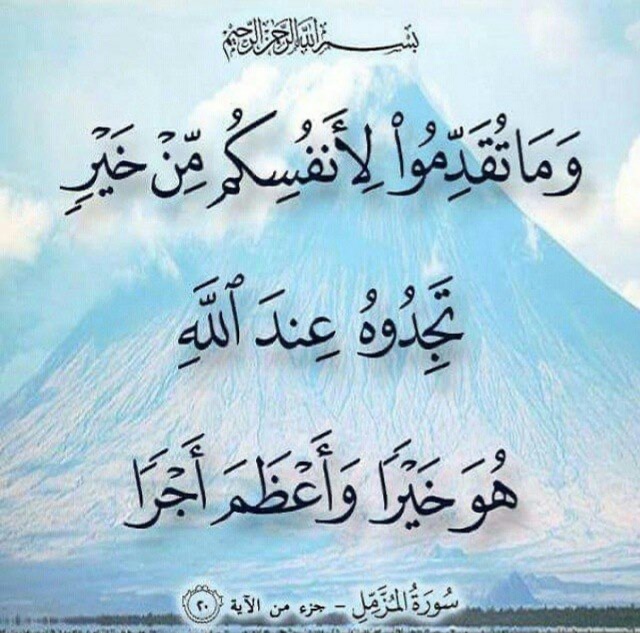 بسم الله الرحمن الرحيم
وَمَا تُقَدِّمُوا۟ لِأَنفُسِكُم مِّنْ خَيْرٍ
تَجِدُوهُ عِندَ ٱللَّهِ
هُوَ خَيْرًا وَأَعْظَمَ أَجْرًا
سُورَةُ المُزَّمِّل - جزء من الآية ٢٠